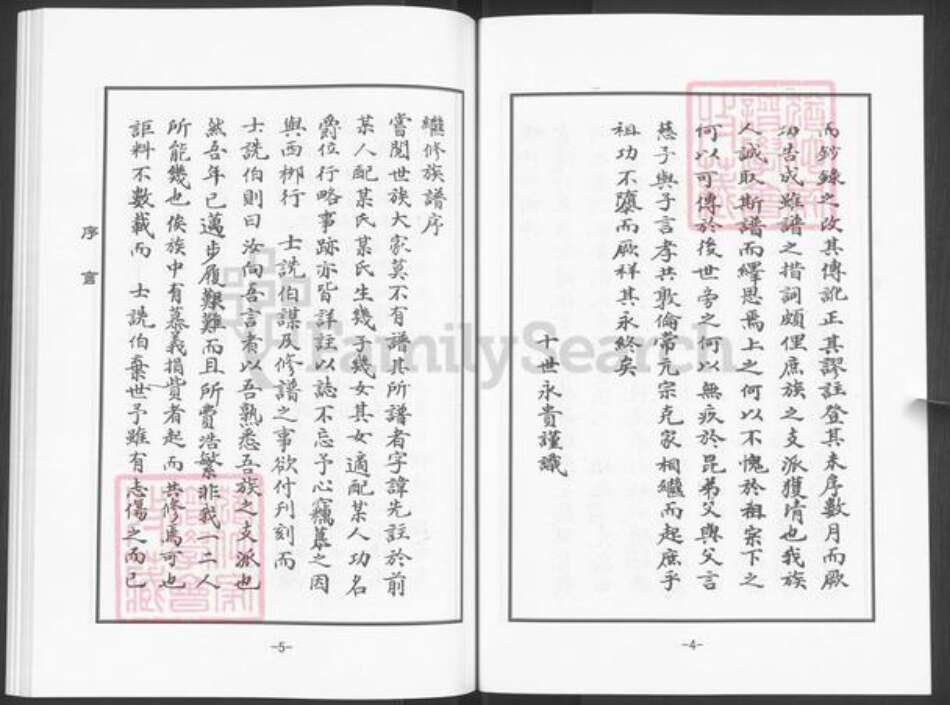 而鈔錄之改其傳訛正其謬註登其未序數月而厥
功告成雖譜之措詞頗俚庶族之支派獲清也我族
人誠取斯譜而繹思焉上之何以不愧於祖宗下之
何以可傳於後世旁之何以無疚於昆弟父與父言
慈子與子言孝共敦倫常亢宗克家相繼而起庶乎
祖功不隳而厥祥其永終矣
十世永貴謹識
-4-
繼修族譜序
嘗閱世族大家莫不有譜其所譜者字諱先註於前
某人配某氏某氏生幾子幾女其女適配某人功名
爵位行略事跡亦皆詳註以誌不忘予心竊慕之因
與西梆行 士詵伯謀及修譜之事欲付刋刻而
士詵伯則曰汝向吾言者以吾熟悉吾族之支派也
然吾年已邁步履艱難而且所費浩繁非我一二人
所能幾也俟族中有慕義捐貲者起而共修焉可也
詎料不數載而 士詵伯棄世予雖有志傷之而已
序言
-5-
FamilySearch